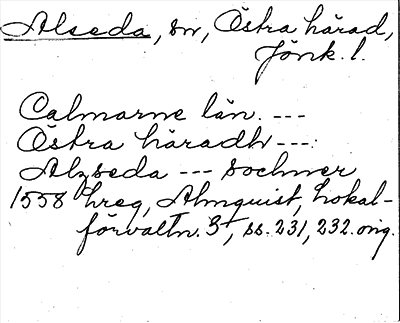 Alseda, sn, Östra härad,
Jönk. l.
Calmarne län. ---
Östra häradh ---:
Alzseda --- Sochner
1558 hreg, Almquist, Lokal-
förvaltn. 3, ss. 231, 232. orig.